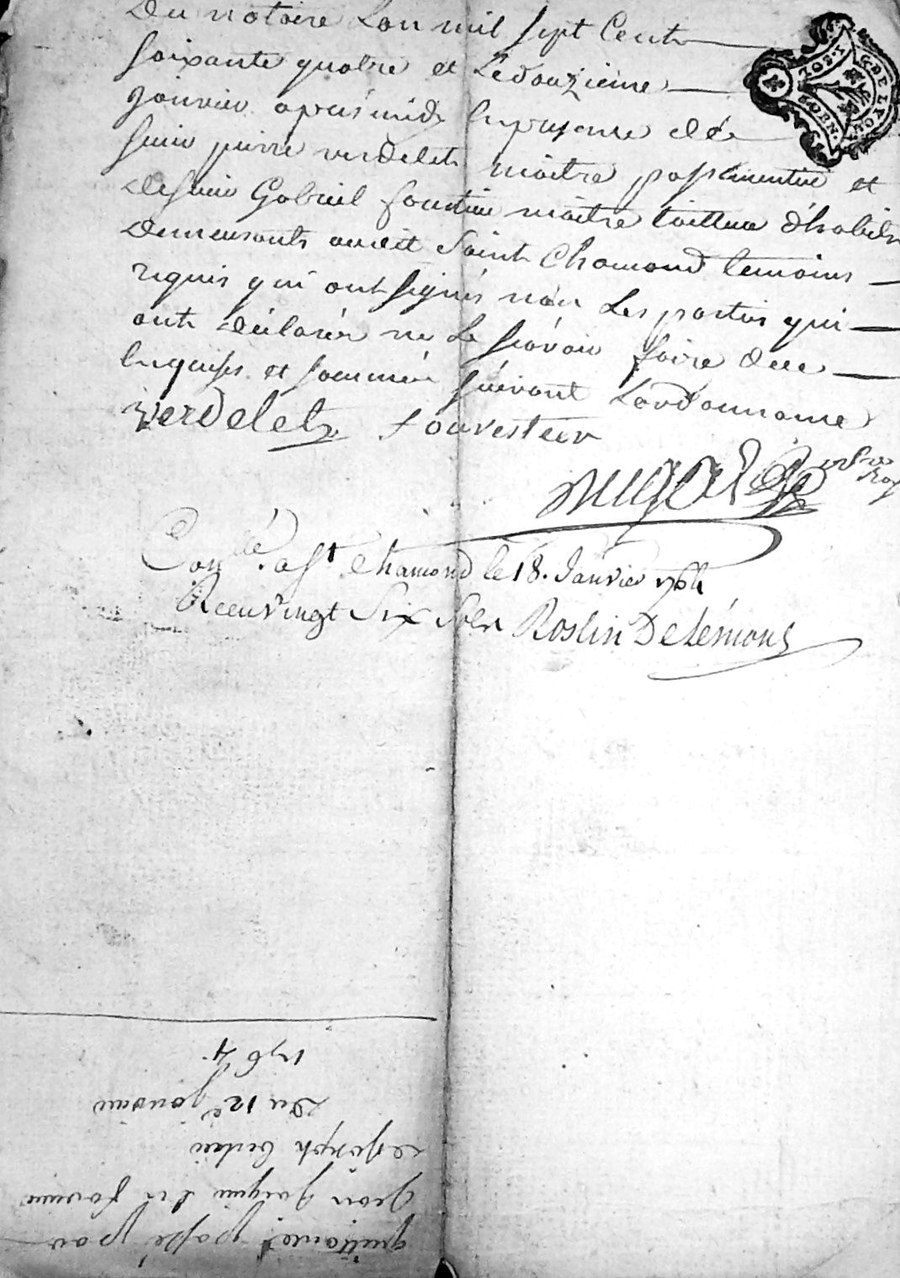 du notaire Lan mil sept Cent
soixante quatre et Ledouzieme
janvier apres midy En presence de
sieur pierre verdelet maitre passementier et
de sieur Gabriel maitre tailleur d'habits
demeurants audit Saint Chamond temoins
requis qui ont signés non Les parties qui
ont déclarés ne Le sçavoir faire de ce
Enquises et sommées suivant Lordonnance
verdelet
Roy
Con.lé a St Chamond le 18. Janvier 1764
Receu vingt Six Sols Roslin Delémont
quittance passé par
jean
a joseph
du 12e janvier
1764